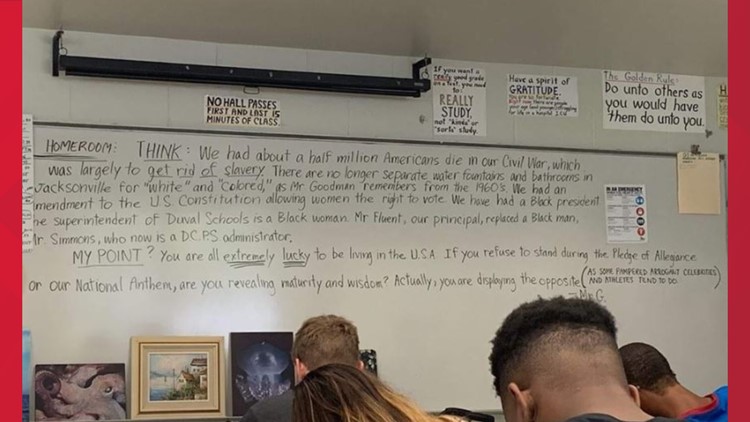 If you want a
really good grade
on a test, you need
to:
REALLY
STUDY,
not "kinda" or
"sorta" study.
Have a spirit of
GRATITUDE.
The Golden Rule:
Do unto others as
you would have
them do unto you.
NO HALL PASSES
FIRST AND LAST 15
MINUTES OF CLASS.
HOMEROOM: THINK: We had about a half million Americans die in our Civil War, which
was largely to get rid of slavery. There are no longer separate water fountains and bathrooms in
Jacksonville for "white" and "colored," as Mr Goodman remembers from the 1960's. We had an
mendment to the U.S. Constitution allowing women the right to vote. We have had a Black president
he superintendent of Duval Schools is a Black woman. Mr Fluent, our principal, replaced a Black man,
Mr. Simmons, who now is a D.C.P.S. administrator.
MY POINT? You are all extremely lucky to be living in the U.S.A. If you refuse to stand during the Pledge of Allegiance
or our National Anthem, are you revealing maturity and wisdom? Actually, you are displaying the opposite (AS SOME PAMPERED ARROGANT CELEBRITIES
AND ATHLETES TEND TO DO.)
- Mr. G.
IN AN EMERGENCY